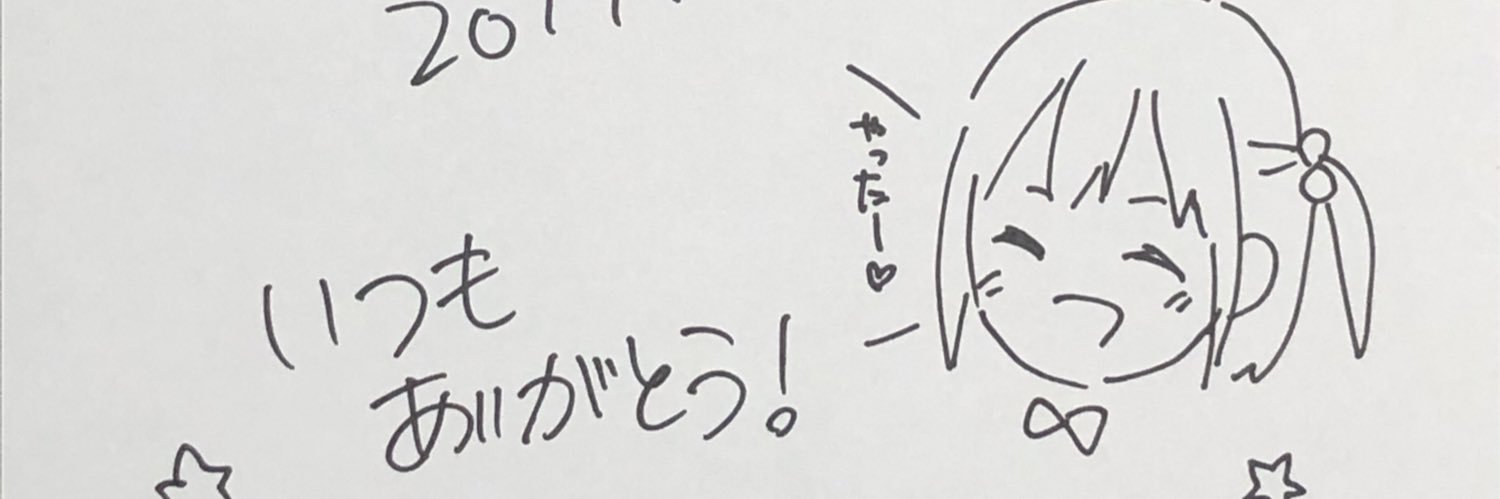 いつも
ありがとう!
やったー♡